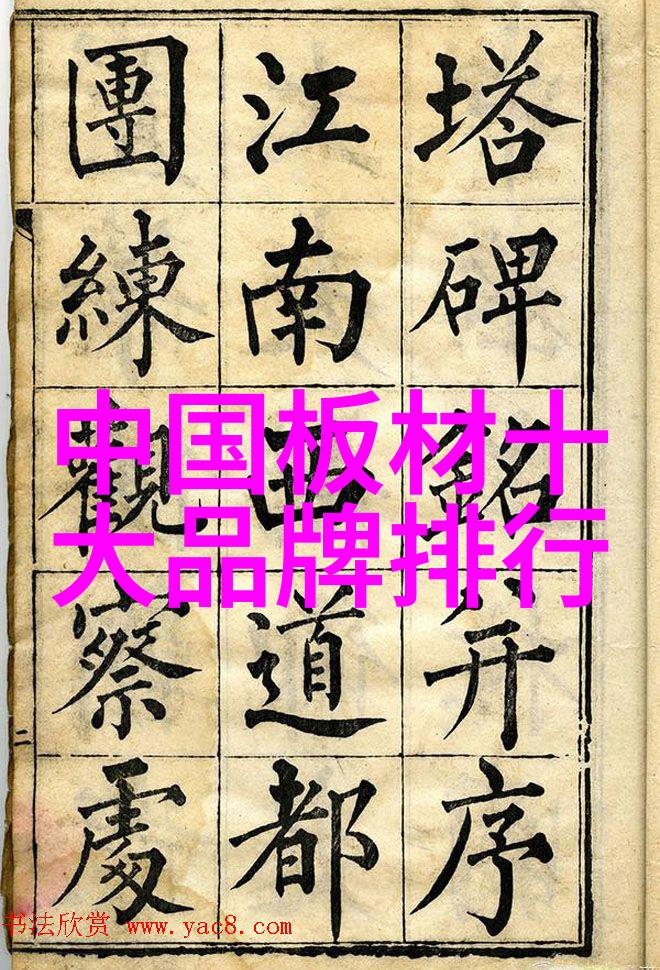 塔碑銘并序
江南西道都
團練觀察處
二
中国板材十
大品牌排行
书法欣赏 www.yac8.com